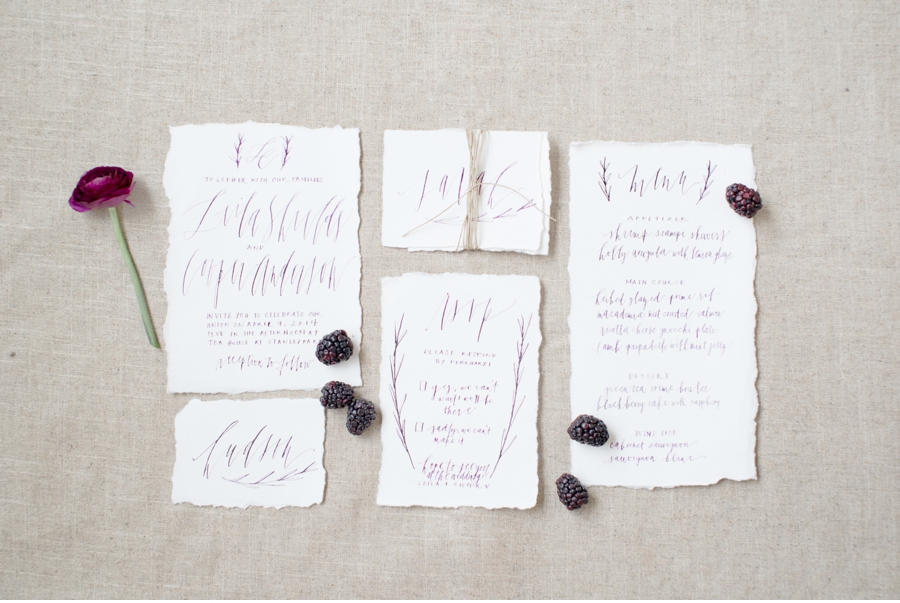 TOGETHER WITH OUR FAMILIES
AND
INVITE YOU TO CELEBRATE OUR
UNION ON APRIL 9, 2014
FIVE IN THE AFTERNOON AT
TEA HOUSE AT STANLEY PARK
reception to follow
hudson
sarah
rsvp
PLEASE RESPOND
BY
[] yes, we can't
wait! will be
there
[] sadly, we can't
make it
hope to see you
at the wedding!
menu
APPETIZER
shrimp scampi skewers
holly arugula with lemon
MAIN COURSE
herbed glazed prime rib
macadamia nut crusted salmon
ricotta cheese gnocchi plate
lamb with mint jelly
DESSERT
green tea creme brulee
blackberry cake with raspberry
WINE LIST
cabernet sauvignon
sauvignon blanc